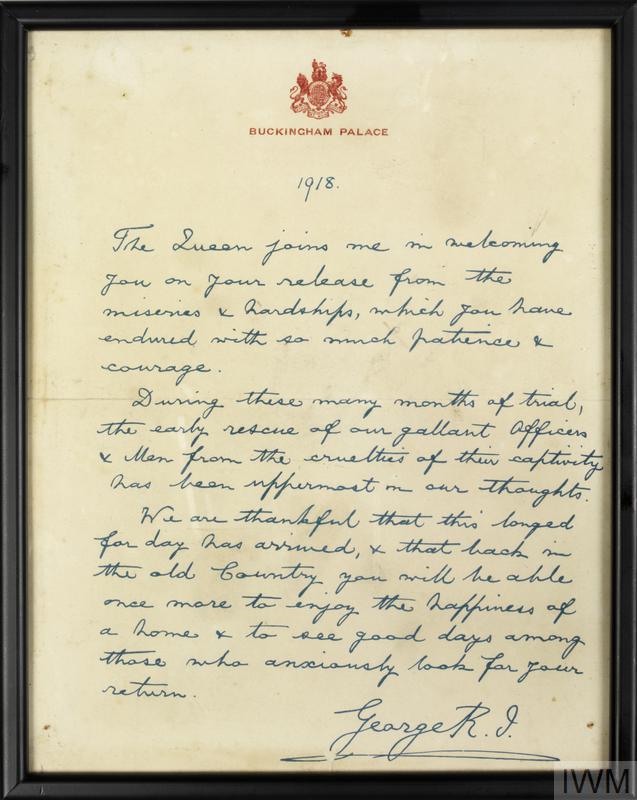 BUCKINGHAM PALACE
1918.
The Queen joins me in welcoming
you on your release from the
miseries & hardships, which you have
endured with so much patience &
courage.
During these many months of trial,
the early rescue of our gallant Officers
& Men from the cruelties of their captivity
has been uppermost in our thoughts.
We are thankful that this longed
for day has arrived, & that back in
the old Country you will be able
once more to enjoy the happiness of
a home & to see good days among
those who anxiously look for your
return.
George R. I.
IWM